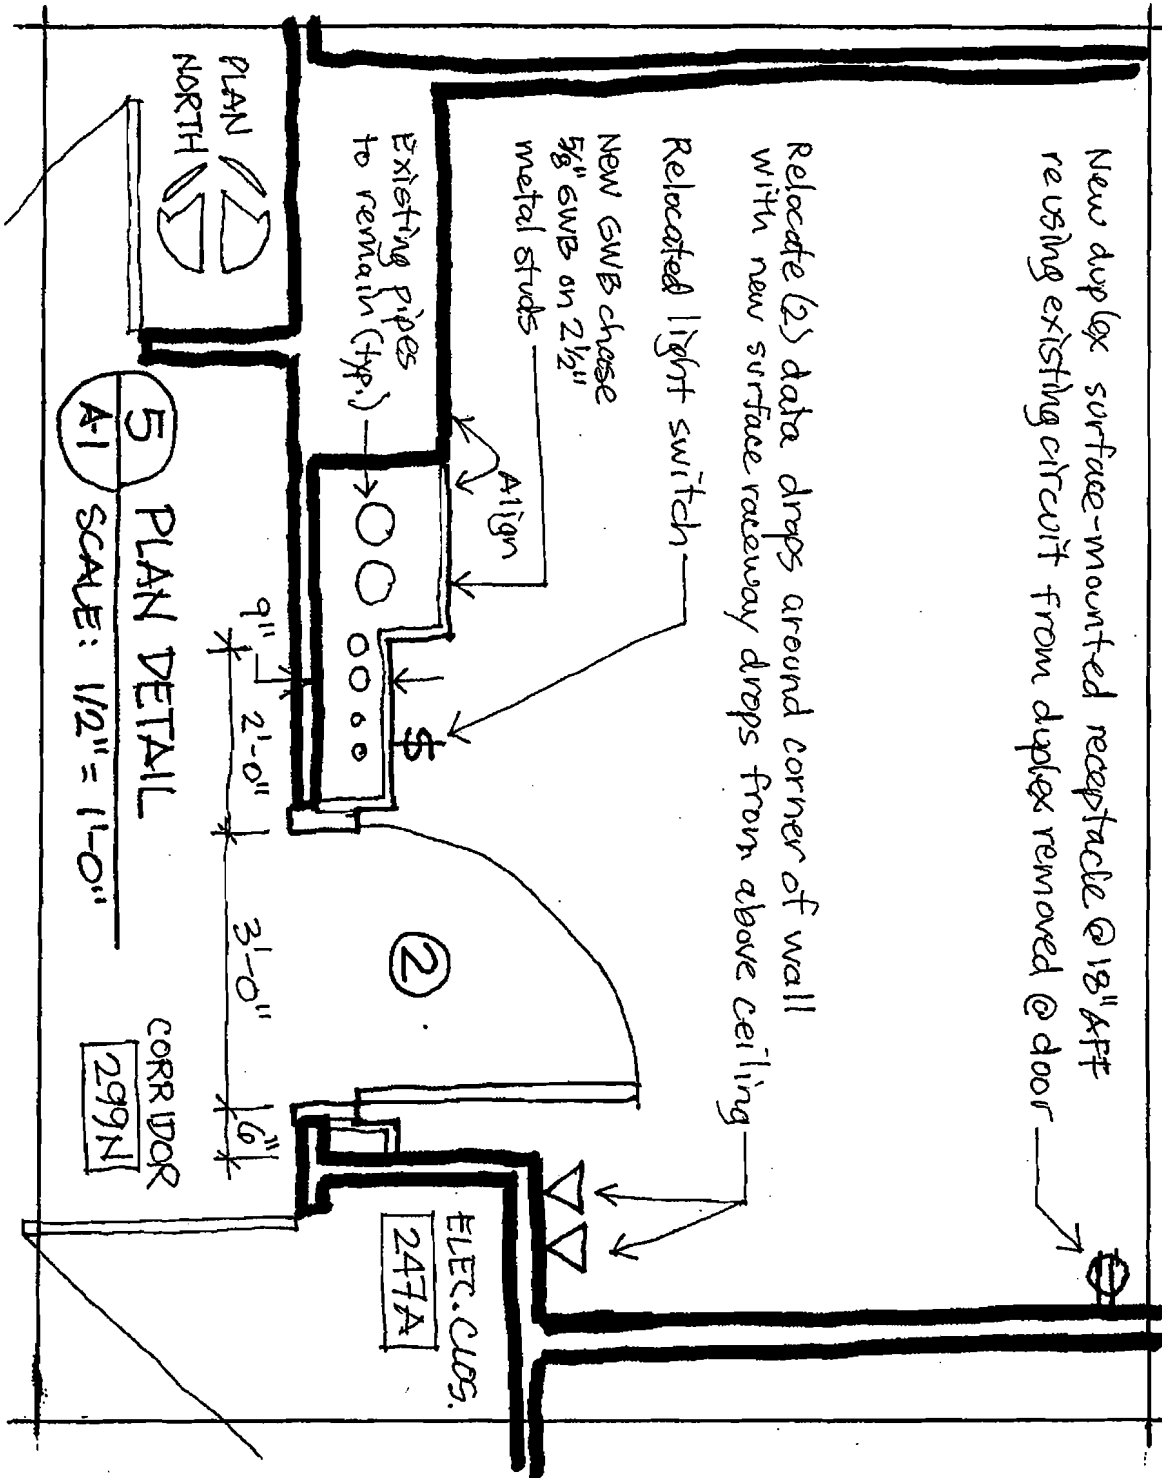 New duplex surface-mounted receptacle @ 18" AFF
reusing existing circuit from duplex removed @ door
Relocate (2) data drops around corner of wall
with new surface raceway drops from above ceiling
Relocated light switch
New GWB chase
5/8" GWB on 2 1/2"
metal studs
Align
Existing pipes
to remain (typ.)
$
2
ELEC. CLOS.
247A
9"
2'-0"
3'-0"
6"
PLAN
NORTH
CORRIDOR
299N
5
A-1
PLAN DETAIL
SCALE: 1/2" = 1'-0"